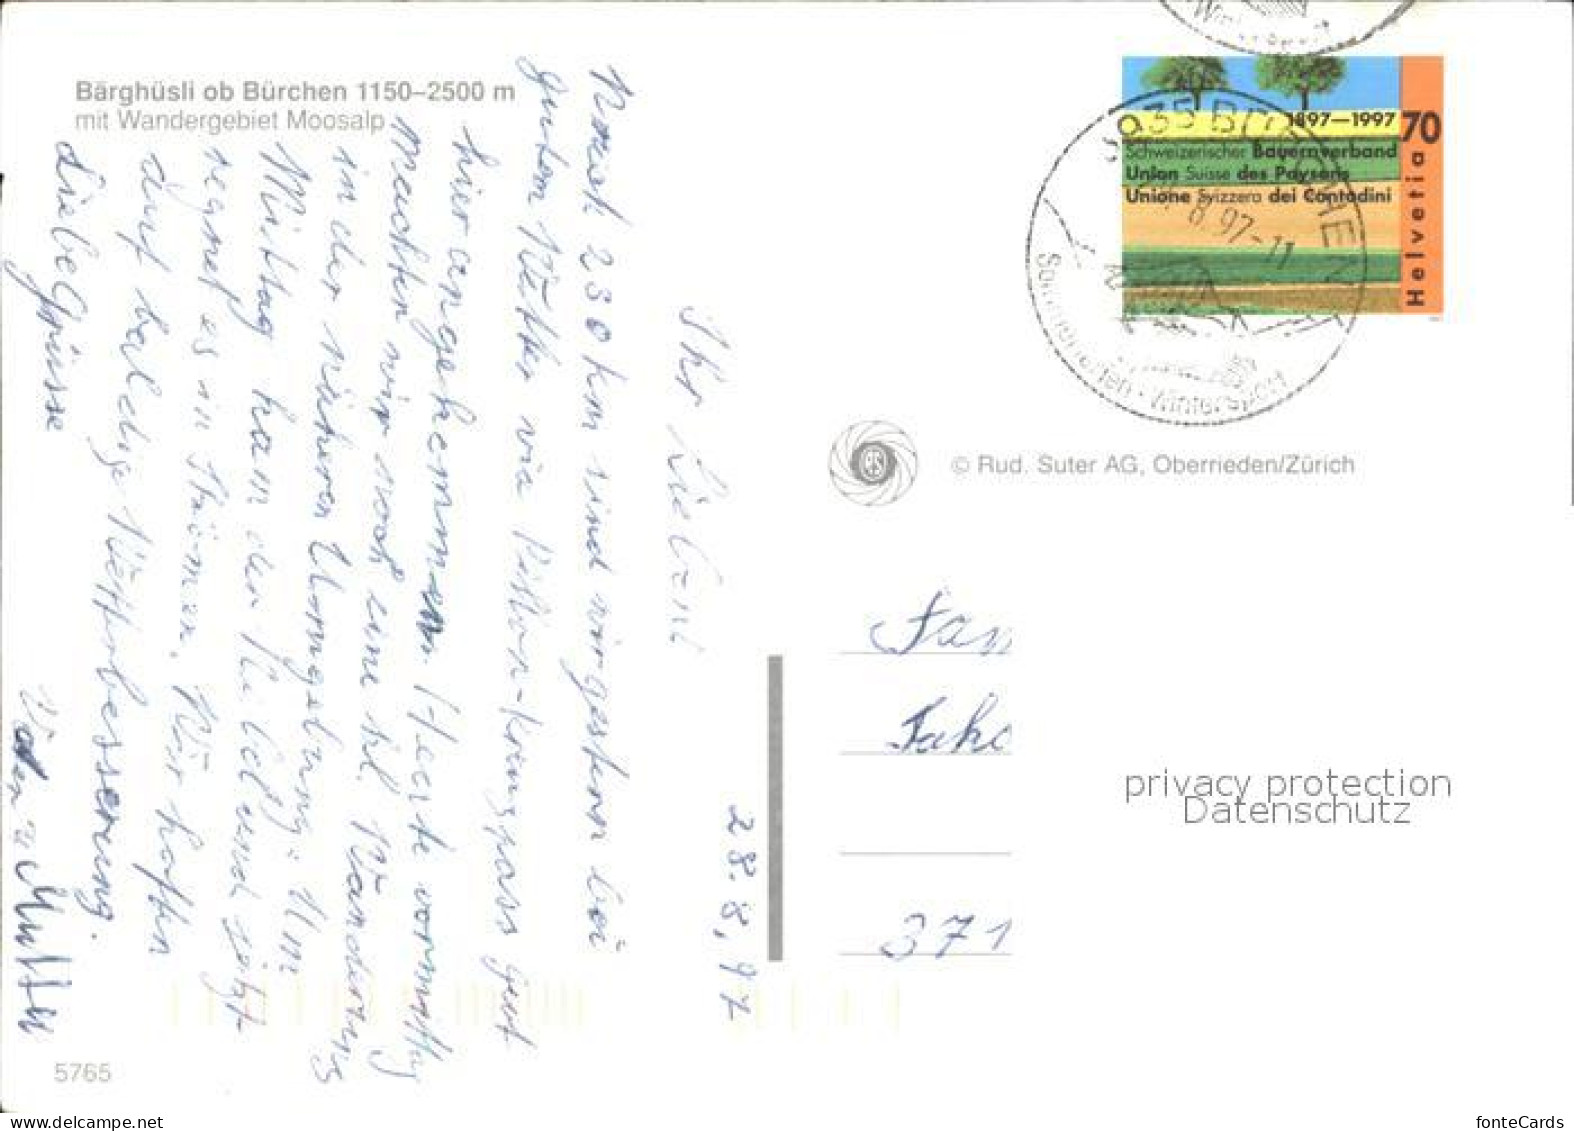 Bärghüsli ob Bürchen 1150–2500 m
mit Wandergebiet Moosalp
28.8.97
Ihr Lieben!
Nach 230 km sind wir gestern bei
gutem Wetter via Pillon-
gut
hier angekommen. Heute vormittag
machten wir noch eine kl. Wanderung
in der näheren Umgebung. Am
Mittag kam der Nebel und jetzt
regnet es in Strömen. Wir hoffen
auf baldige Wetterbesserung.
Liebe Grüsse
Vater u. Mutter
5765
1897–1997
70
Schweizerischer Bauernverband
Union Suisse des Paysans
Unione Svizzera dei Contadini
Helvetia
3935 BÜRCHEN
8.97-11
Sommerferien · Wintersport
Wintersport
© Rud. Suter AG, Oberrieden/Zürich
Fam
371
privacy protection
Datenschutz
www.delcampe.net
fonteCards